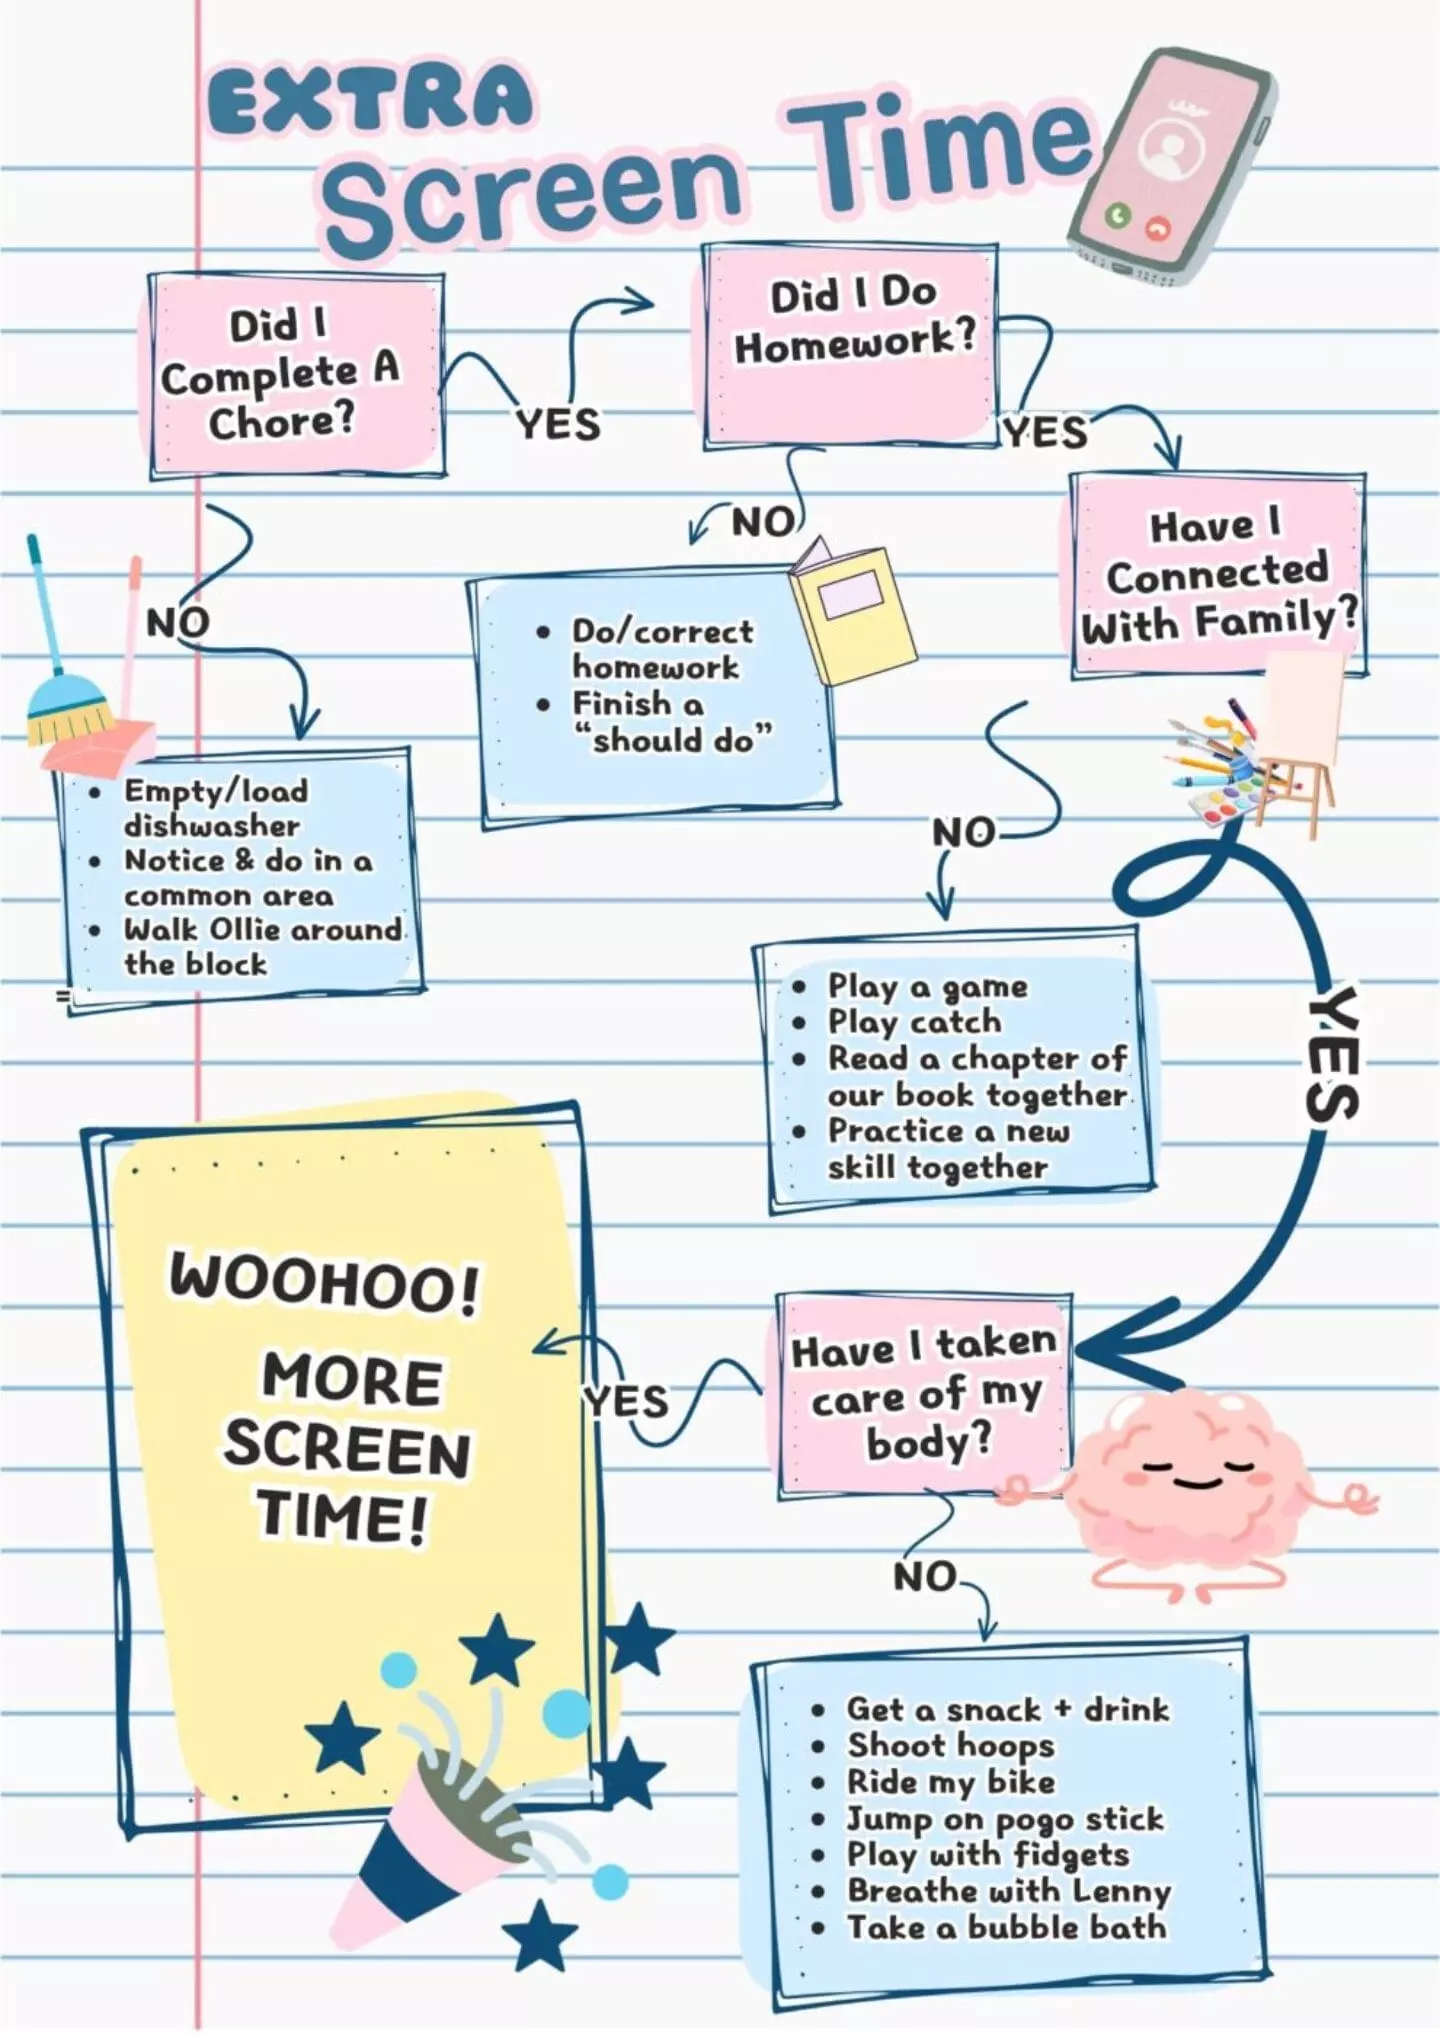 EXTRA
Screen Time
Did I
Complete A
Chore?
YES
Did I Do
Homework?
YES
Have I
Connected
With Family?
NO
• Do/correct
homework
• Finish a
“should do”
NO
• Empty/load
dishwasher
• Notice & do in a
common area
• Walk Ollie around
the block
=
NO
• Play a game
• Play catch
• Read a chapter of
our book together
• Practice a new
skill together
YES
Have I taken
care of my
body?
YES
WOOHOO!
MORE
SCREEN
TIME!
NO
• Get a snack + drink
• Shoot hoops
• Ride my bike
• Jump on pogo stick
• Play with fidgets
• Breathe with Lenny
• Take a bubble bath